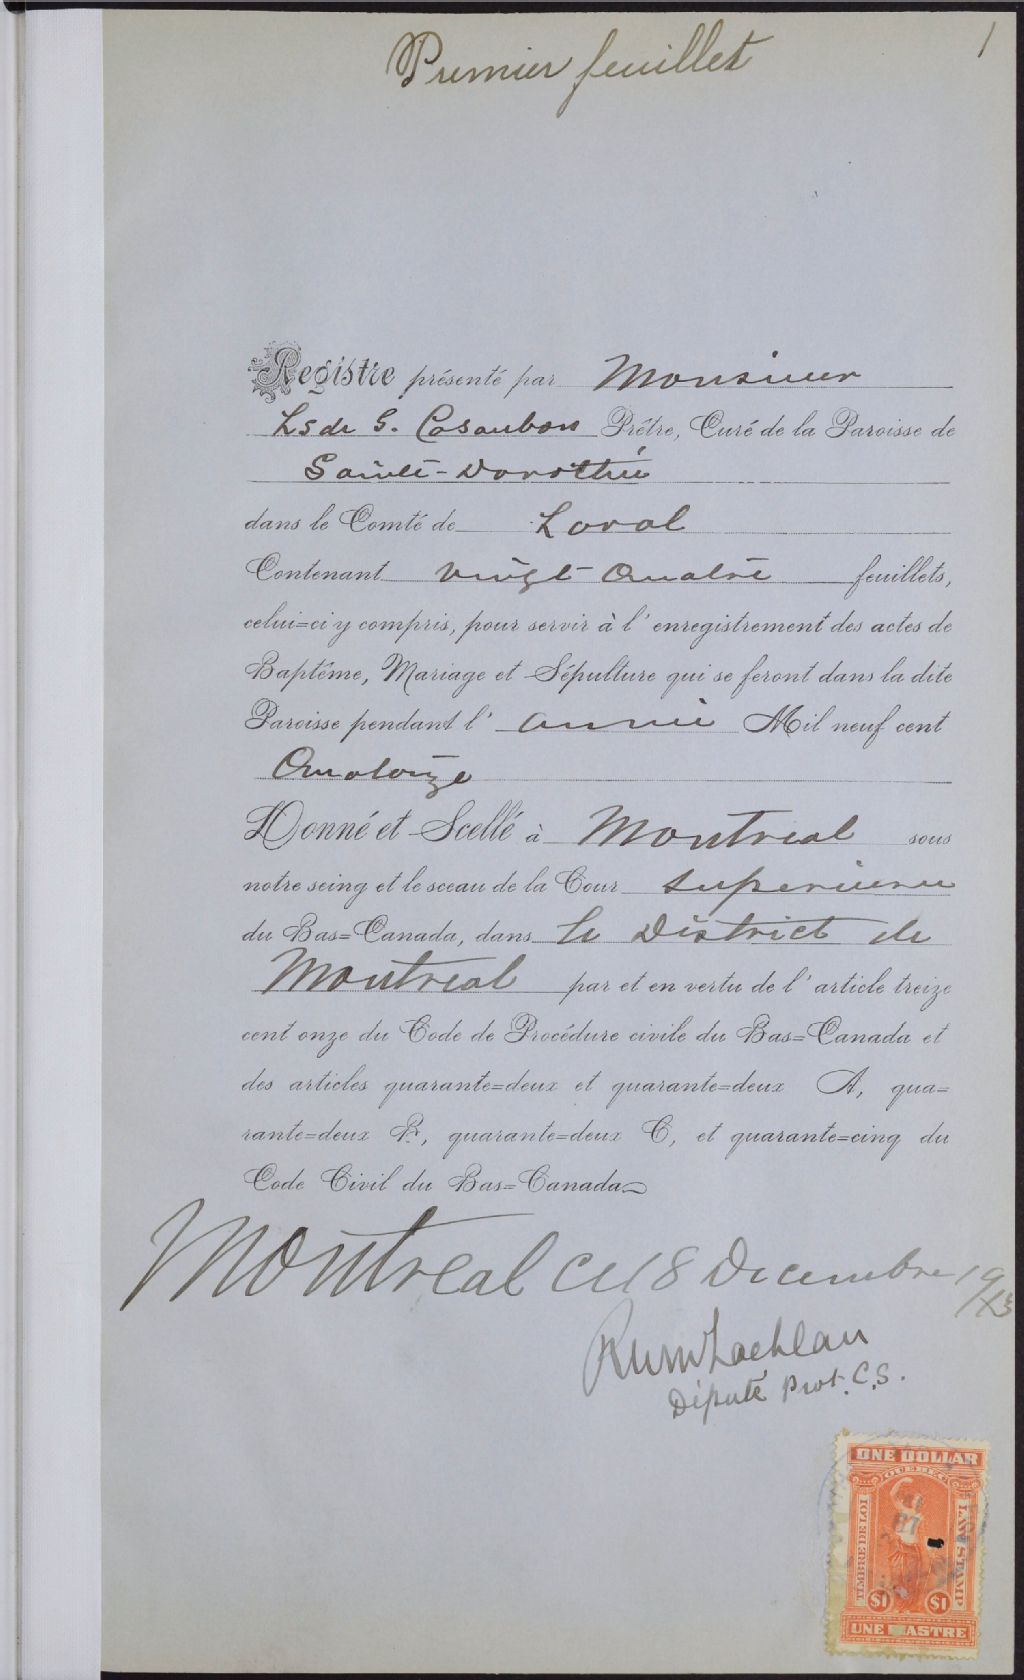 1
Premier feuillet
Registre présenté par Monsieur
Ls de G. Casaubon Prêtre, Curé de la Paroisse de
Sainte-Dorothée
dans le Comté de Laval
Contenant vingt quatre feuillets,
celui=ci y compris, pour servir à l'enregistrement des actes de
Baptême, Mariage et Sépulture qui se feront dans la dite
Paroisse pendant l'année Mil neuf cent
Quatorze
Donné et Scellé à Montreal sous
notre seing et le sceau de la Cour superieure
du Bas=Canada, dans le District de
Montreal par et en vertu de l'article treize
cent onze du Code de Procédure civile du Bas=Canada et
des articles quarante=deux et quarante=deux A, qua=
rante=deux B, quarante=deux C, et quarante=cinq du
Code Civil du Bas=Canada
Montreal ce 18 Decembre 1913
Lachlan
Député Prot. C.S.
ONE DOLLAR
QUEBEC
TIMBRE DE LOI
LAW STAMP
$1 $1
UNE PIASTRE